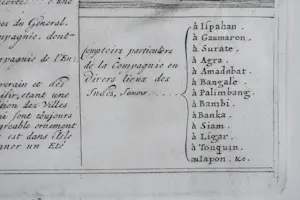 du General.
mpagnie, dont
mpagnie de l'En:
verain et des
tion des Villes
ui font toujours
gréable ornement
est dans l'Isle
nner un Eté
Comptoirs particuliers
de la Compagnie en
Divers lieux des
Indes, Sçavoir.....
à Ispahan.
à Gaumaron.
à Surate.
à Agra.
à Amadabat.
à Bangale.
à Palimbang.
à Bambi.
à Banka.
à Siam.
à Ligar.
à Tonquin.
au Iapon. &c.